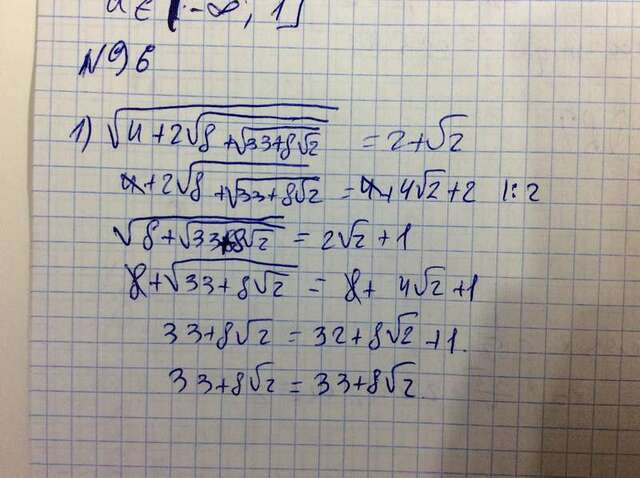 a ∈ (-∞, 1]
N96
1) √(4+2√(8+√(33+8√2))) = 2+√2
4+2√(8+√(33+8√2)) = 4+4√2+2 |:2
√(8+√(33+8√2)) = 2√2+1
8+√(33+8√2) = 8+4√2+1
33+8√2 = 32+8√2+1.
33+8√2 = 33+8√2.